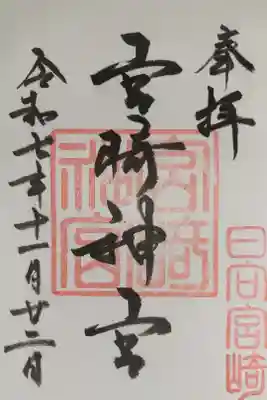 奉拝
日向宮崎
宮崎神宮
宮崎
神宮
令和七年十一月廿二日